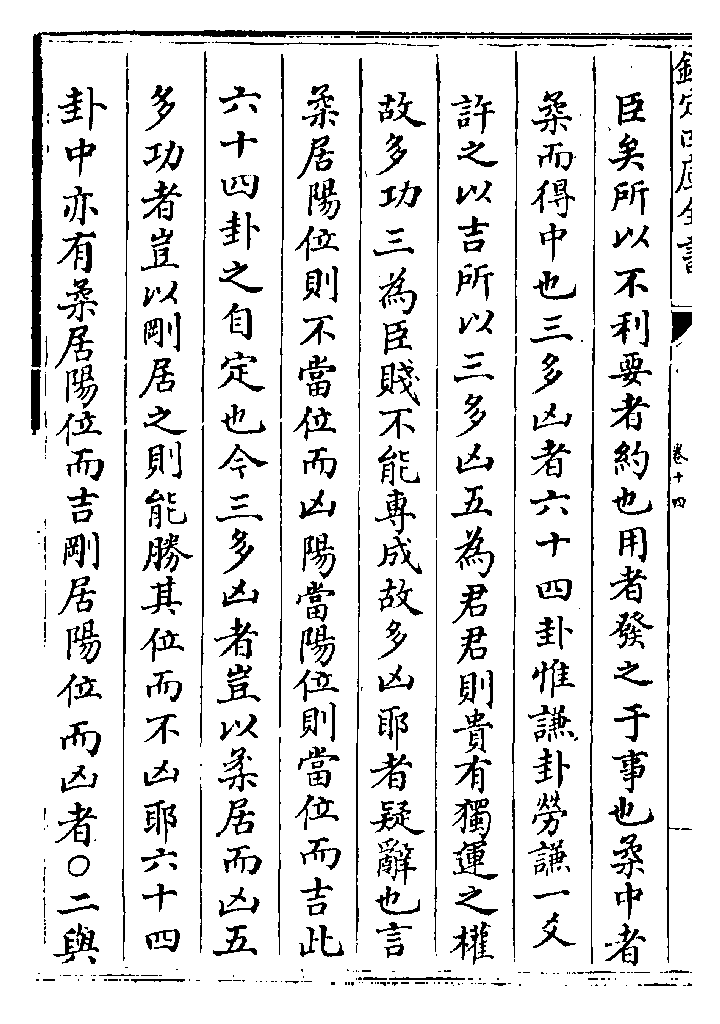 欽定四庫全書
卷十四
臣矣所以不利要者約也用者發之于事也柔中者
柔而得中也三多凶者六十四卦惟謙卦勞謙一爻
許之以吉所以三多凶五為君君則貴有獨運之權
故多功三為臣賤不能專成故多凶耶者疑辭也言
柔居陽位則不當位而凶陽當陽位則當位而吉此
六十四卦之自定也今三多凶者豈以柔居而凶五
多功者豈以剛居之則能勝其位而不凶耶六十四
卦中亦有柔居陽位而吉剛居陽位而凶者○二與